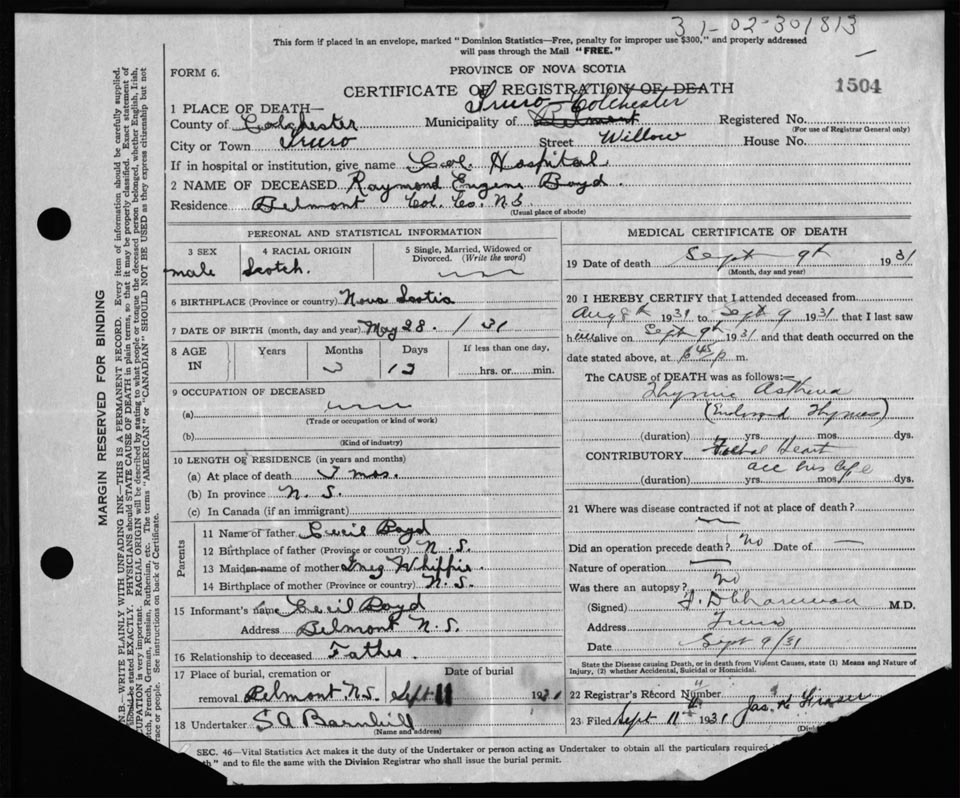 31-02-301813
This form if placed in an envelope, marked "Dominion Statistics—Free, penalty for improper use $300," and properly addressed
will pass through the Mail "FREE."
FORM 6.
PROVINCE OF NOVA SCOTIA
CERTIFICATE OF REGISTRATION OF DEATH
1504
Truro Colchester
1 PLACE OF DEATH—
County of Colchester Municipality of Belmont Registered No.
(For use of Registrar General only)
City or Town Truro Street Willow House No.
If in hospital or institution, give name Col. Hospital
2 NAME OF DECEASED Raymond Eugene Boyd.
Residence Belmont Col. Co. N.S.
(Usual place of abode)
PERSONAL AND STATISTICAL INFORMATION
3 SEX 4 RACIAL ORIGIN 5 Single, Married, Widowed or
Divorced. (Write the word)
male Scotch.
6 BIRTHPLACE (Province or country) Nova Scotia
7 DATE OF BIRTH (month, day and year) May 28. / 31
8 AGE IN Years Months Days If less than one day,
3 12 hrs. or min.
9 OCCUPATION OF DECEASED
(a)
(Trade or occupation or kind of work)
(b)
(Kind of industry)
10 LENGTH OF RESIDENCE (in years and months)
(a) At place of death mos.
(b) In province N. S.
(c) In Canada (if an immigrant)
Parents
11 Name of father Cecil Boyd
12 Birthplace of father (Province or country) N. S.
13 Maiden name of mother Inez Whippie
14 Birthplace of mother (Province or country) N. S.
15 Informant's name Cecil Boyd
Address Belmont N. S.
16 Relationship to deceased Father.
17 Place of burial, cremation or Date of burial
removal Belmont N.S. Sept 11 1931
18 Undertaker S.A. Barnhill
(Name and address)
MEDICAL CERTIFICATE OF DEATH
19 Date of death Sept 9th 1931
(Month, day and year)
20 I HEREBY CERTIFY that I attended deceased from
Aug 8th 1931 to Sept 9 1931 that I last saw
him alive on Sept 9th 1931 and that death occurred on the
date stated above, at 45 p m.
The CAUSE of DEATH was as follows:—
Thymic Asthma
(Enlarged Thymus)
(duration) yrs. mos. dys.
CONTRIBUTORY Foetal Heart
all his life
(duration) yrs. mos. dys.
21 Where was disease contracted if not at place of death?
Did an operation precede death? No Date of —
Nature of operation
Was there an autopsy? no
(Signed) M.D.
Address Truro
Date Sept 9/31
State the Disease causing Death, or in death from Violent Causes, state (1) Means and Nature of
Injury, (2) whether Accidental, Suicidal or Homicidal.
22 Registrar's Record Number
23 Filed Sept 11th 1931 Jas.
SEC. 46—Vital Statistics Act makes it the duty of the Undertaker or person acting as Undertaker to obtain all the particulars required
and to file the same with the Division Registrar who shall issue the burial permit.
MARGIN RESERVED FOR BINDING
N.B.—WRITE PLAINLY WITH UNFADING INK—THIS IS A PERMANENT RECORD. Every item of information should be carefully supplied.
stated EXACTLY. PHYSICIANS should STATE CAUSE OF DEATH in plain terms, so that it may be properly classified. Exact statement of
CUPATION is very important. RACIAL ORIGIN will be described by stating to what people or tongue the deceased person belonged, whether English, Irish,
tch, French, German, Russian, Ruthenian, etc. The terms "AMERICAN" or "CANADIAN" SHOULD NOT BE USED as they express citizenship but not
race or people. See instructions on back of Certificate.